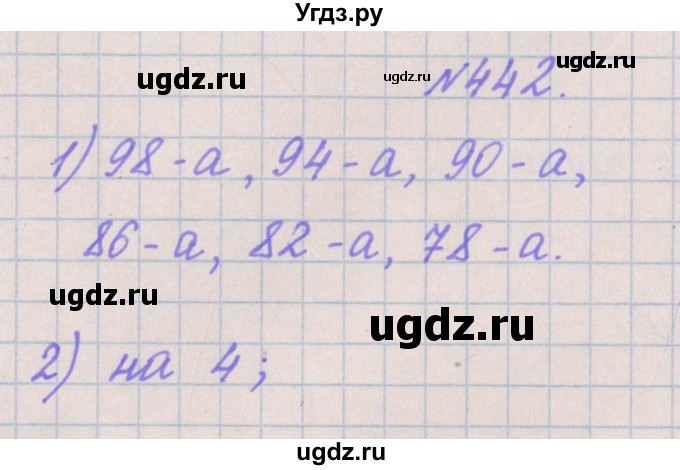 Угдз.ру
ugdz.ru ugdz.ru №442. ugdz.ru
1) 98-а, 94-а, 90-а,
86-а, 82-а, 78-а.
ugdz.ru ugdz.ru
2) на 4;
ugdz.ru